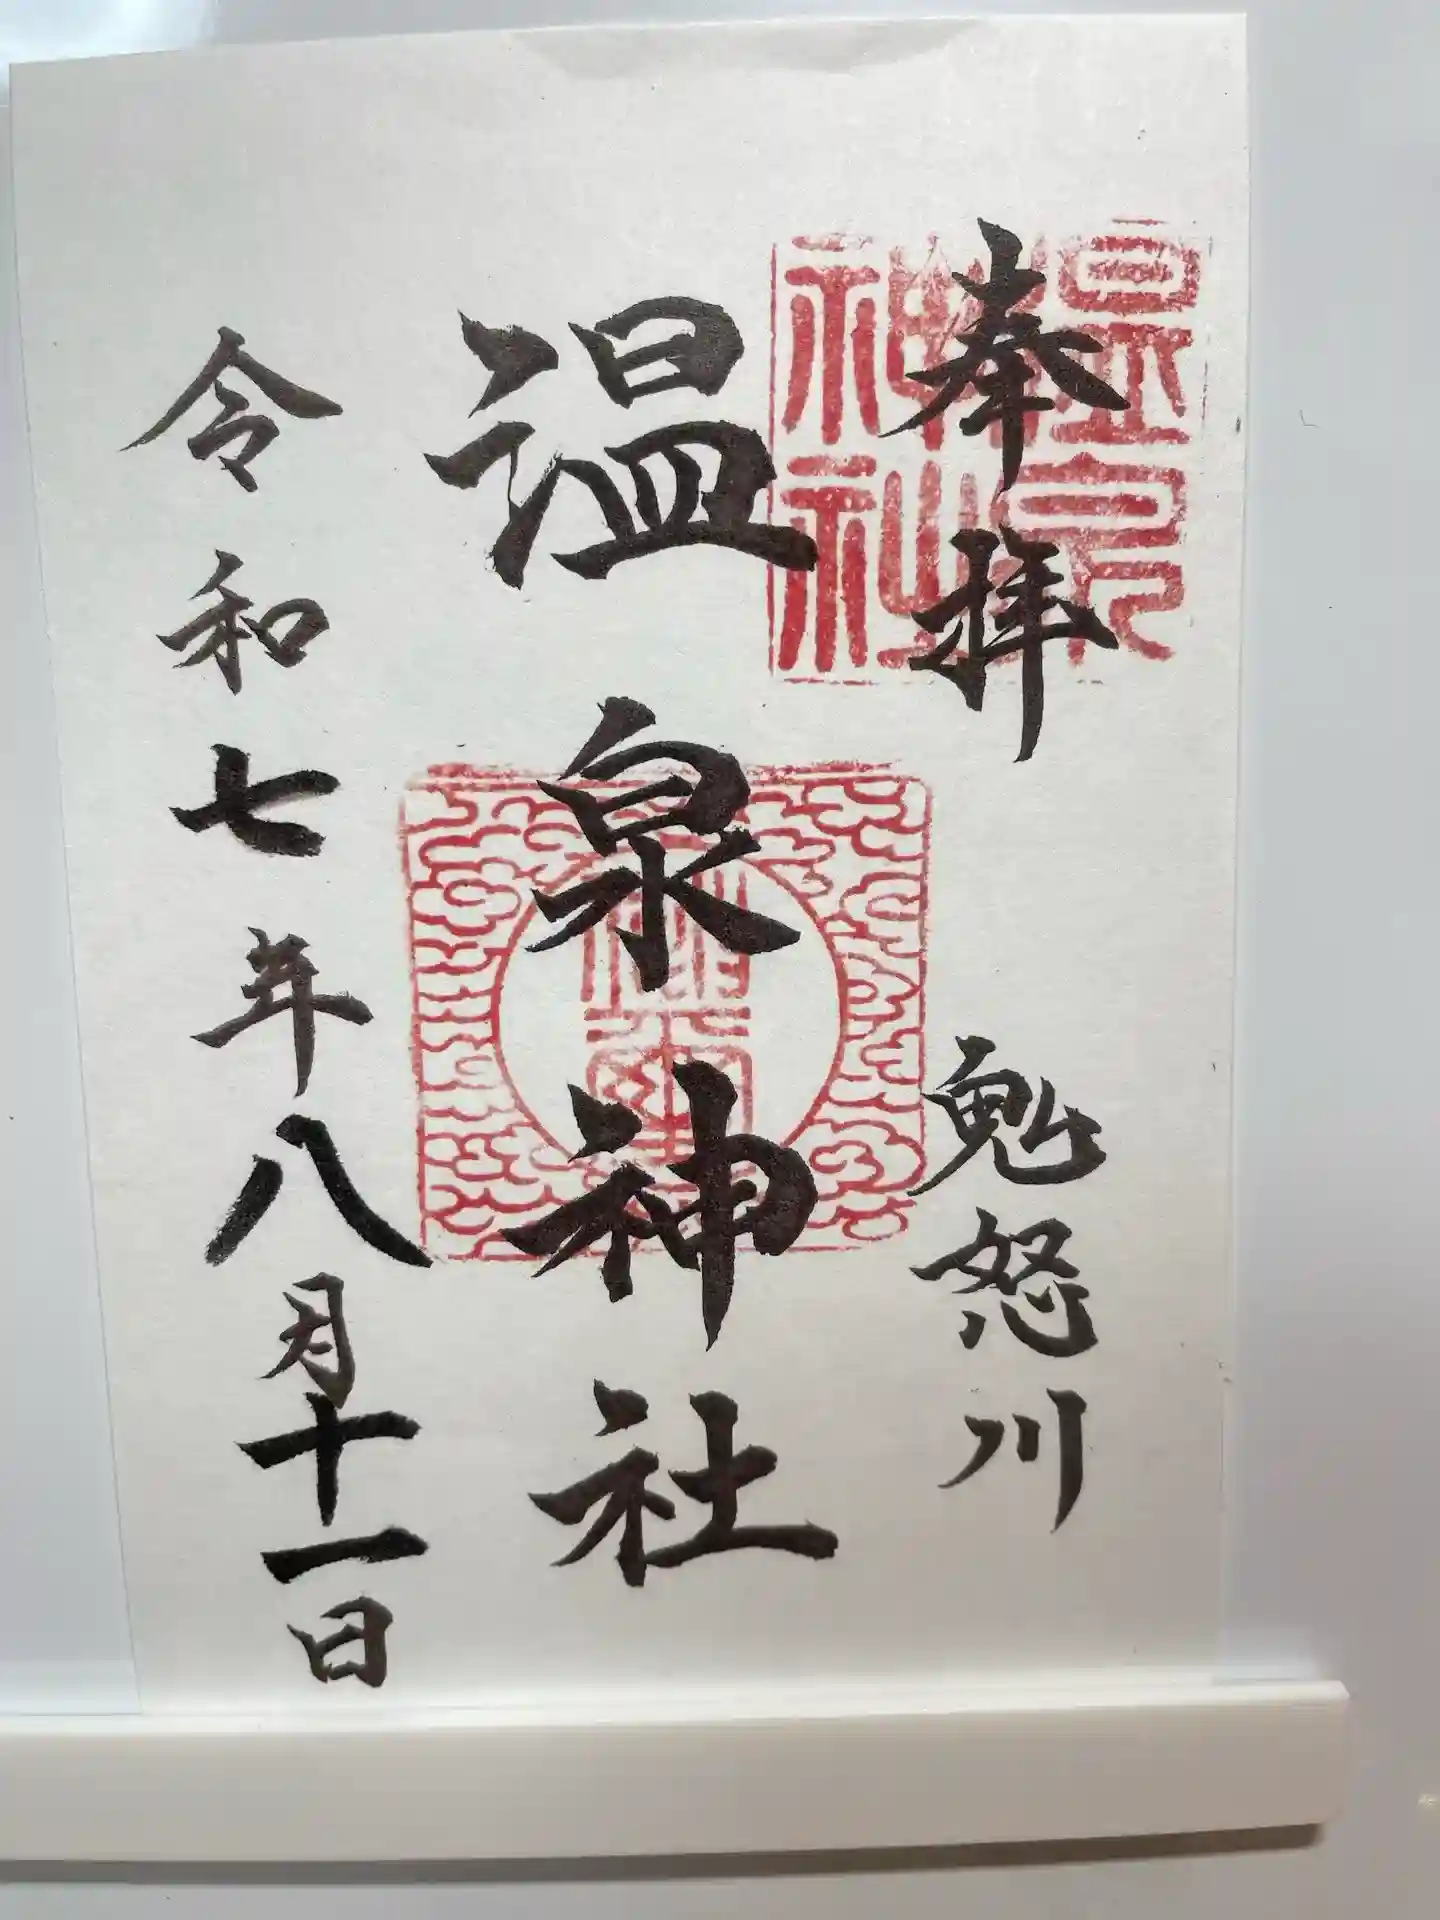 奉拝
鬼怒川
温泉神社
令和七年八月十一日
温泉
神社
神社